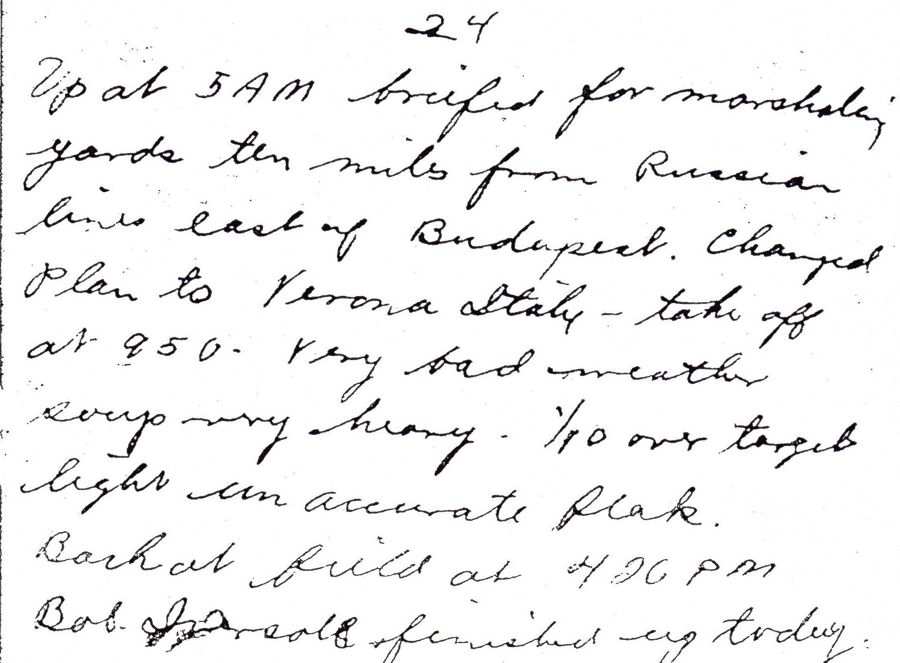 24
Up at 5 AM briefed for marshaling
yards ten miles from Russian
lines east of Budapest. Changed
Plan to Verona Italy - take off
at 950. Very bad weather
soup very heavy. 1/10 over target
light un accurate flak.
Back at field at 420 PM
Bob finished up today.